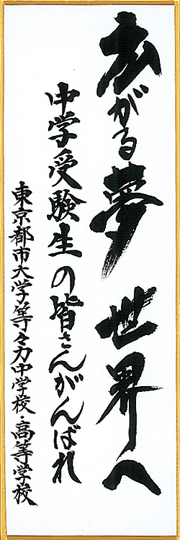 広がる夢 世界へ
中学受験生の皆さんがんばれ
東京都市大学等々力中学校・高等学校